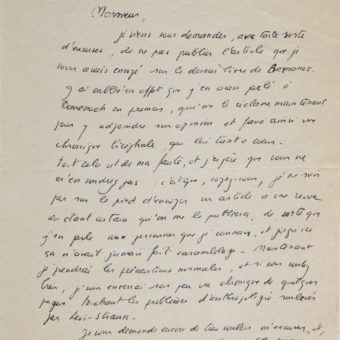 Monsieur,
je viens vous demander, avec toute sorte
d'excuses, de ne pas publier l'article que je
vous avais envoyé sur le dernier livre de Bernanos.
J'avais oublié en effet que j'en avais parlé à
Domenach en premier, qui me le réclame maintenant
pour y adjoindre son opinion et faire ainsi une
chronique bicéphale qui lui tient à cœur.
Tout cela est de ma faute, et j'espère que vous ne
m'en voudrez pas : c'est que, voyez-vous, je ne suis
pas sur le pied d'envoyer un article à une revue
en étant certain qu'on me le publiera, de sorte que
j'en parle aux personnes que je connais, et jusqu'ici
ça n'avait jamais fait carambolage. Maintenant
je prendrai les précautions normales, et si vous voulez
bien, je vous enverrai sous peu une chronique de quelques
pages touchant les problèmes d'anthropologie soulevés
par Lévi-Strauss.
Je vous demande encore de bien vouloir m'excuser, et,